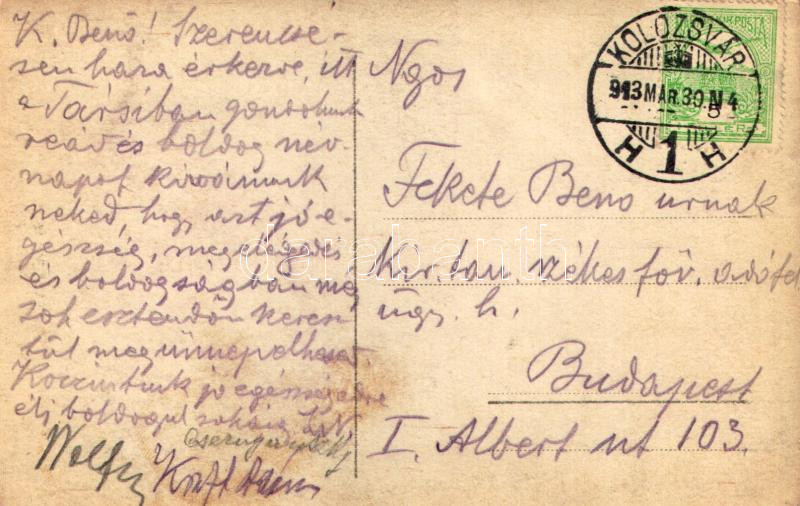 K. Benő! Szerencsé-
sen haza érkezve, itt
a Társiban gondolunk
reád és boldog név-
napot kivánunk
neked, hogy azt jó e-
gészség, megelégedés
és boldogságban még
sok esztendőn keresz-
tül megünnepelhessed
Koccintunk jó egészségedre
élj boldogul sokáig
Kraft
Ngos
Fekete Beno urnak
Kir. tan. székes föv. adófel
ügy. h.
Budapest
I. Albert ut 103.
KOLOZSVÁR
913 MAR. 30. N 4
H 1 H
darabanth.com